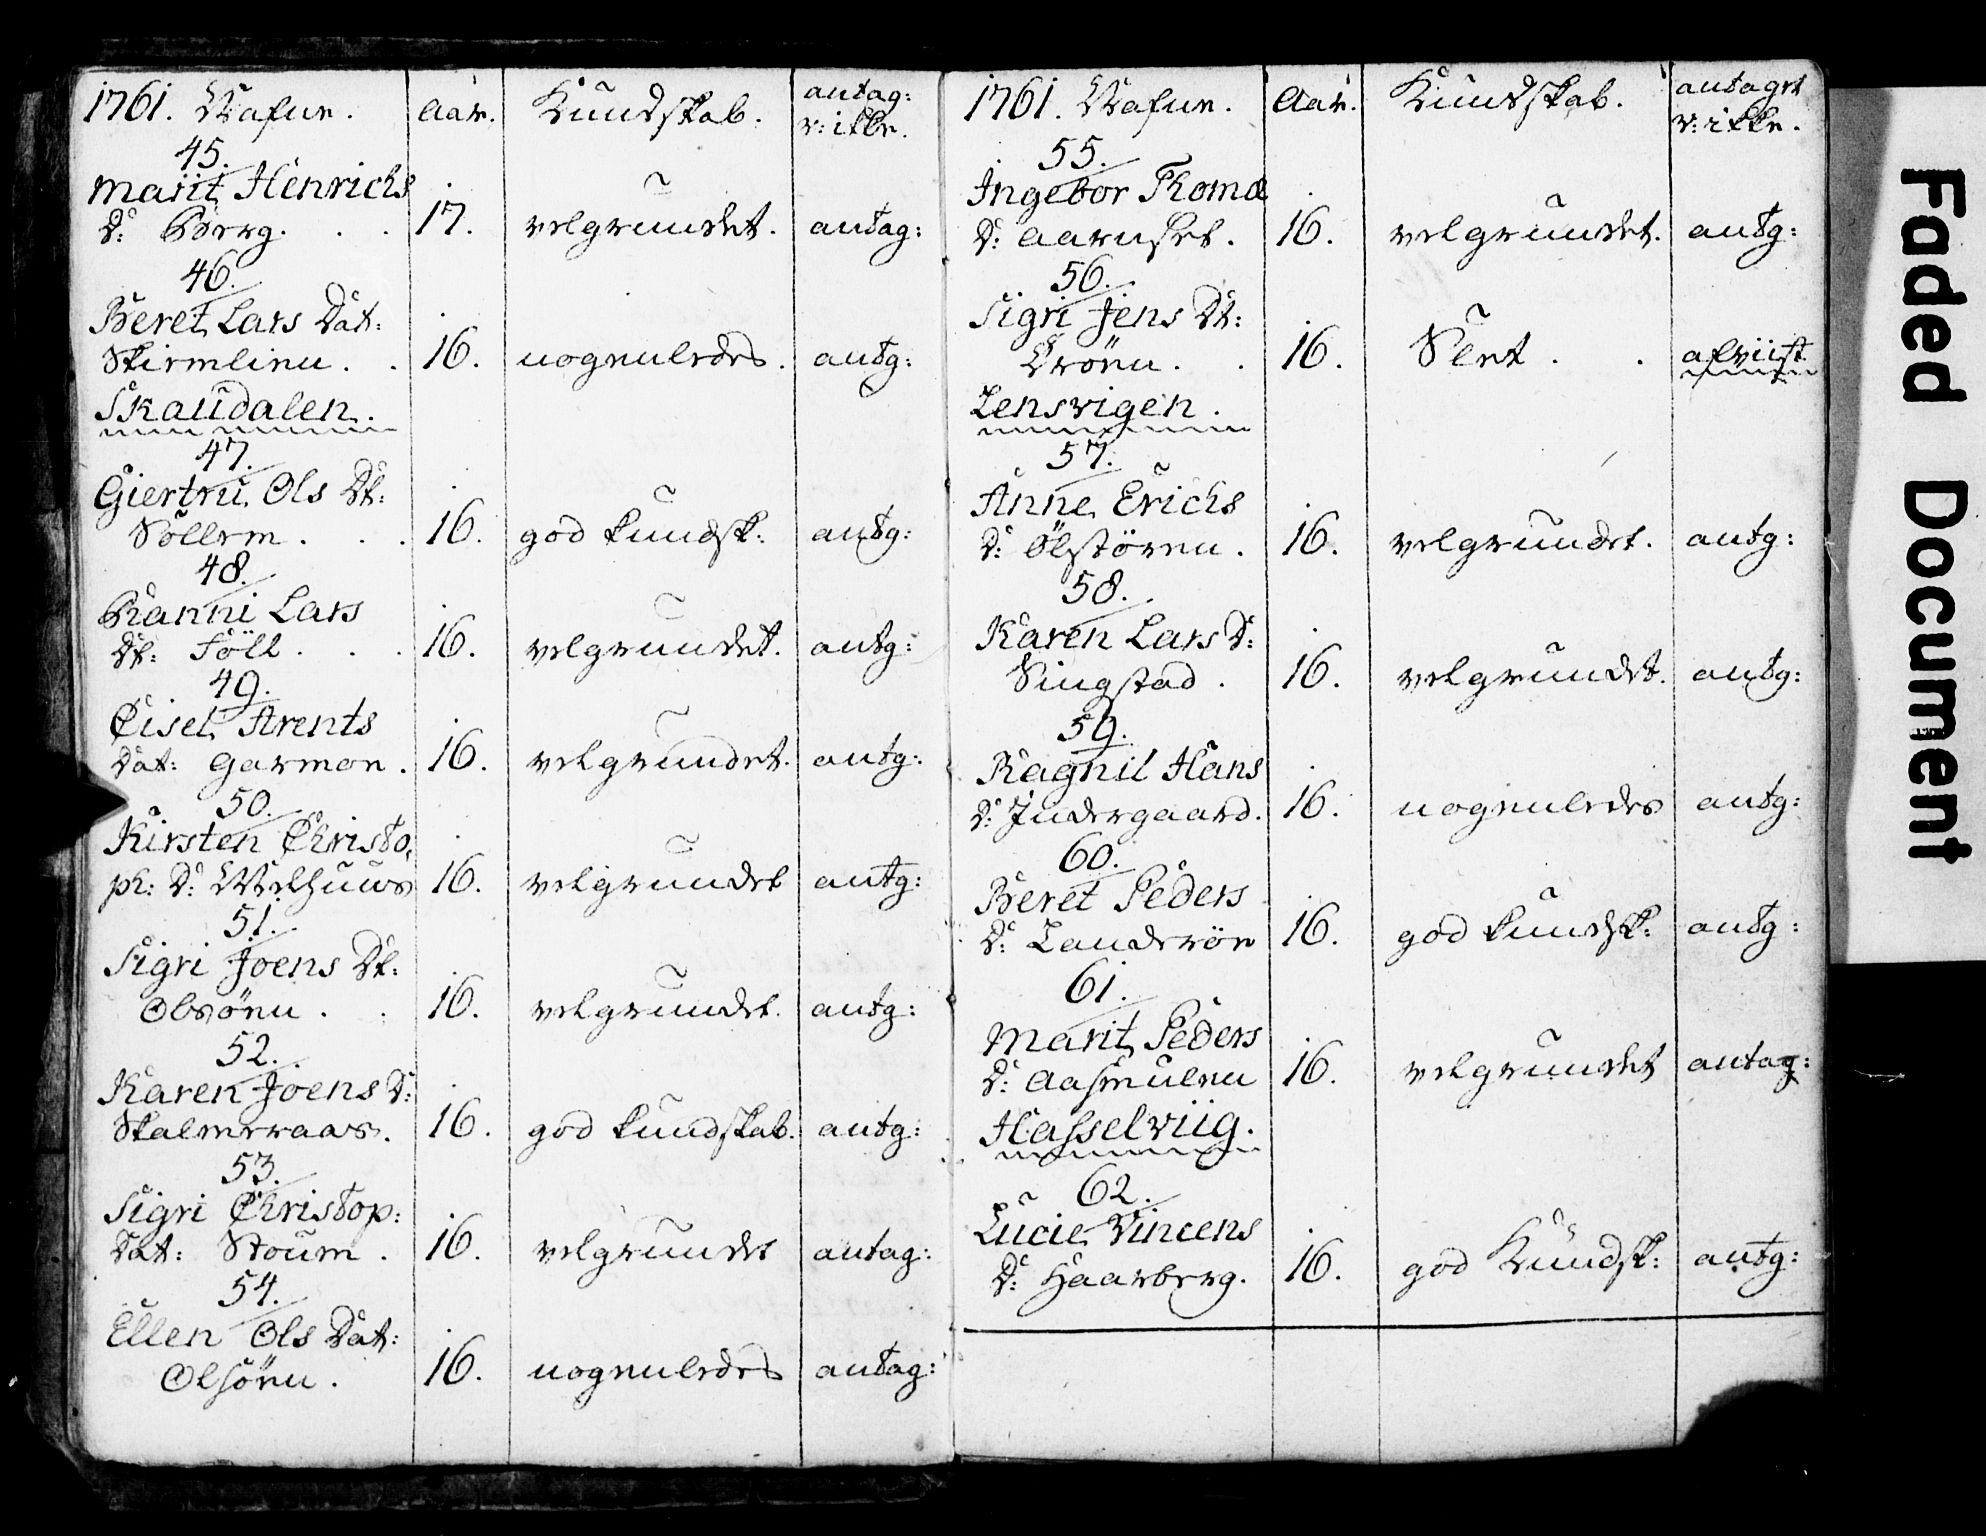 1761. Nafne. aar. Kundskab. antag:
v: ikke.
45.
Marit Henrichs
D: Berg. . . 17. velgrundet. antag:
46.
Beret Lars Dat:
Skirmlien. . 16. nogenledes. antg:
Skaudalen.
47.
Giertru Ols Dt:
Söllem . . . 16. god kundsk: antg:
48.
Ranni Lars
Dt: Föll . . . 16. velgrundet. antg:
49.
Cisel Arents
Dat: Garmon. 16. velgrundet. antg:
50.
Kirsten Christo,
ph: D: Welhuus 16. velgrundet antg:
51.
Sigri Joens Dt:
Olsönn . . 16. velgrundet. antg:
52.
Karen Joens D:
Skalmeraas. 16. god kundskab. antg:
53.
Sigri Christop:
Dat: Stoum . 16. velgrundet antag:
54.
Ellen Ols Dat:
Olsönn . 16. nogenledes antag:
1761. Nafne. Aar. Kundskab. antaget
v: ikke.
55.
Ingebor Thomæ
D: Aarnset. 16. velgrundet. antg:
56.
Sigri Jens Dt:
Örönn . . 16. Slet . . afviist
Lensvigen.
57.
Anne Erichs
D: Ölstören. 16. velgrundet. antg:
58.
Karen Lars D:
Singstad . 16. velgrundet. antg:
59.
Ragnil Hans
D: Indergaard. 16. nogenledes antg:
60.
Beret Peders
D: Landrön 16. god kundsk: antg:
61.
Marit Peders
D: Aasmulen 16. velgrundet antag:
Hasselviig.
62.
Lucie Vincens
D: Haarberg. 16. god Kundsk: antg:
Faded Document